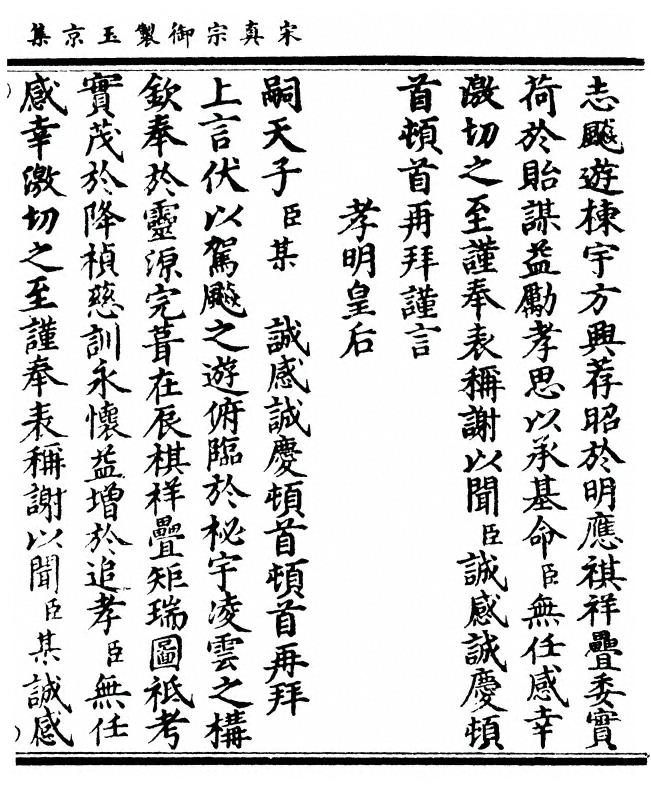 宋真宗御製玉京集
志飈遊棟宇方興荐昭於明應祺祥疊委實
荷於貽謀益勵孝思以承基命臣無任感幸
激切之至謹奉表稱謝以聞臣誠感誠慶頓
首頓首再拜謹言
孝明皇后
嗣天子臣某 誠感誠慶頓首頓首再拜
上言伏以駕飈之遊俯臨於秘宇凌雲之構
欽奉於靈源完葺在辰棋祥疊矩瑞圖祗考
實茂於降楨慈訓永懷益增於追孝臣無任
感幸激切之至謹奉表稱謝以聞臣某誠感